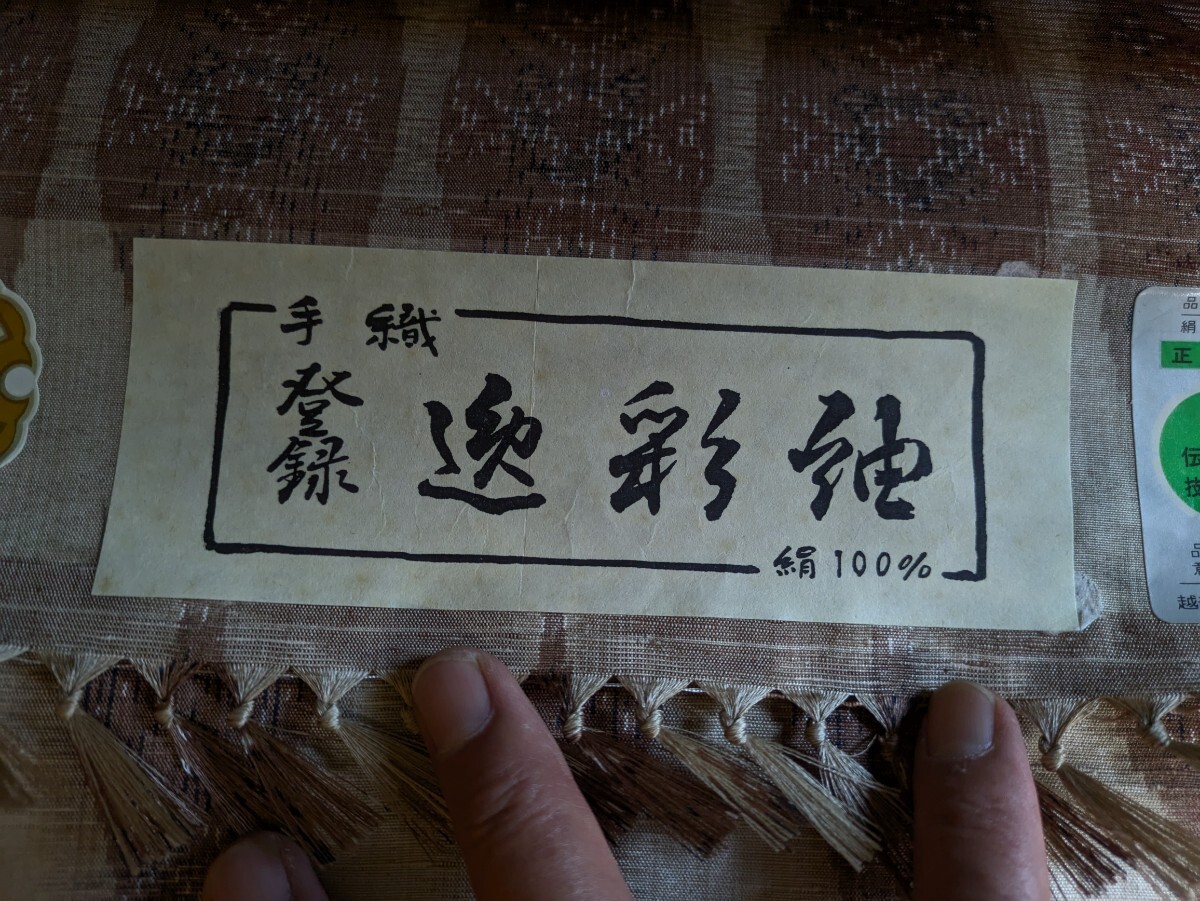 手織
登録
逸彩紬
絹100%
品
絹
正
伝
技
品
越